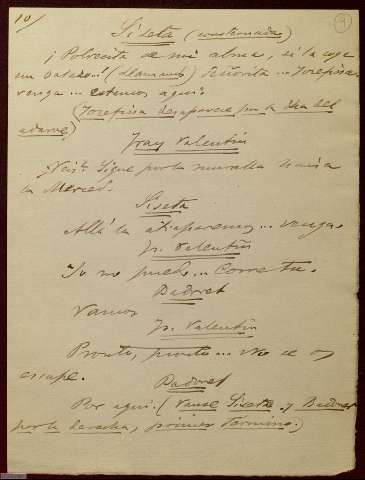 10/
9
Siseta (consternada)
¡Pobrecita de mi alma, si la coge
un balazo..! (llamando) Señorita... Josefina..
venga... estamos aquí.
(Josefina desaparece por la dha del
adarve)
Fray Valentín
¿Veis? Sigue por la muralla hacia
la Merced.
Siseta
Allí la atraparemos... venga.
Fr. Valentín
Yo no puedo... Corre tu.
Badoret
Vamos
Fr. Valentín
Pronto, pronto... No se os
escape.
Badoret
Por aquí. (Vanse Siseta y Badoret
por la derecha, primer término.)